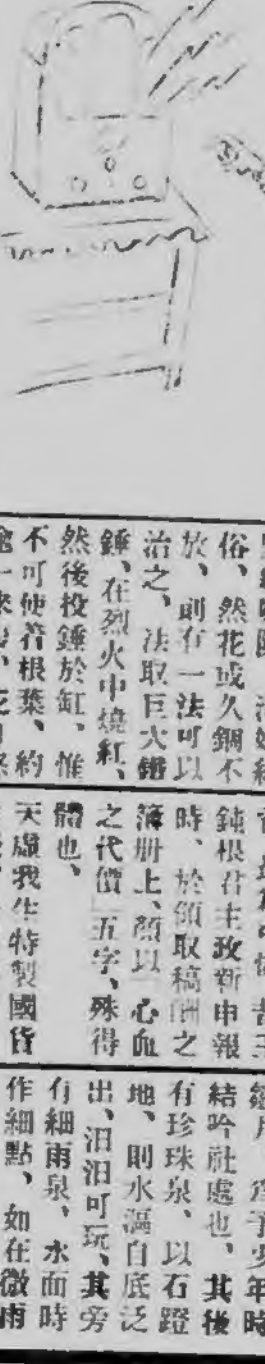 俗、然花或久錮不
放、則有一法可以
治之、法取巨大鐵
錘、在烈火中燒紅、
然後投錘於缸、惟
不可使着根葉、約
鈍根君主政新申報
時、於領取稿酬之
簿册上、顏以「心血
之代價」五字、殊得
體也、
天虛我生特製國貨
結吟社處也、其後
有珍珠泉、以石蹬
地、則水漚自底泛
出、汨汨可玩、其旁
有細雨泉、水面時
作細點、如在微雨